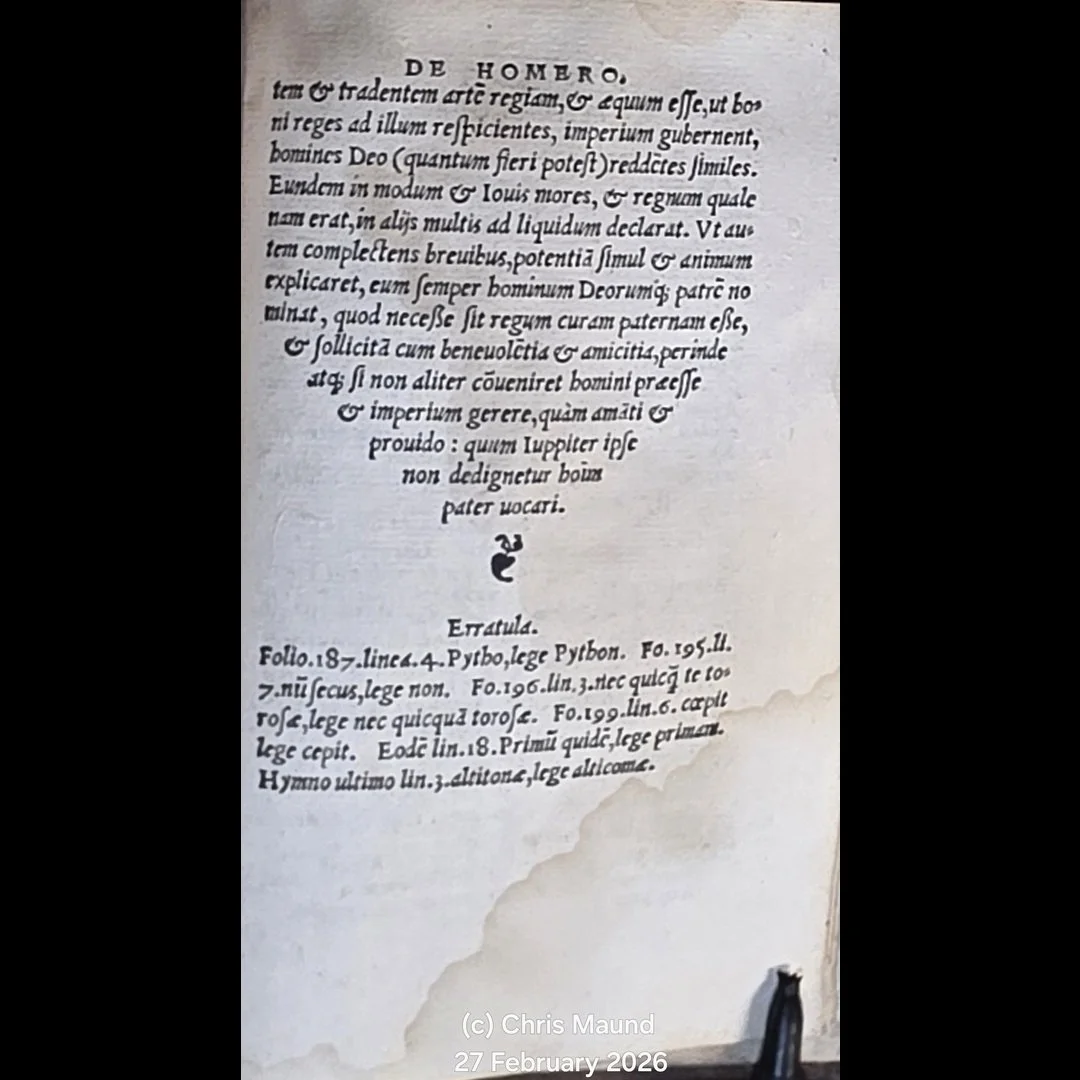 DE HOMERO.
tem & tradentem artē regiam, & æquum eſſe, ut bo-
ni reges ad illum reſpicientes, imperium gubernent,
homines Deo (quantum fieri poteſt) reddētes ſimiles.
Eundem in modum & Iouis mores, & regnum quale
nam erat, in alijs multis ad liquidum declarat. Vt au-
tem complectens breuibus, potentiā ſimul & animum
explicaret, eum ſemper hominum Deorumq; patrē no
minat, quod neceſſe ſit regum curam paternam eſſe,
& ſollicitā cum beneuolētia & amicitia, perinde
atq; ſi non aliter cōueniret homini præeſſe
& imperium gerere, quàm amāti &
prouido : quum Iuppiter ipſe
non dedignetur hoīm
pater uocari.
❦
Erratula.
Folio.187.linea.4.Pytho, lege Python. Fo.195.li.
7.nū ſecus, lege non. Fo.196.lin.3.nec quicq̄ te to-
roſæ, lege nec quicquā toroſæ. Fo.199.lin.6. cœpit
lege cepit. Eodē lin.18.Primū quidē, lege primam.
Hymno ultimo lin.3.altitonæ, lege alticomæ.
(c) Chris Maund
27 February 2026